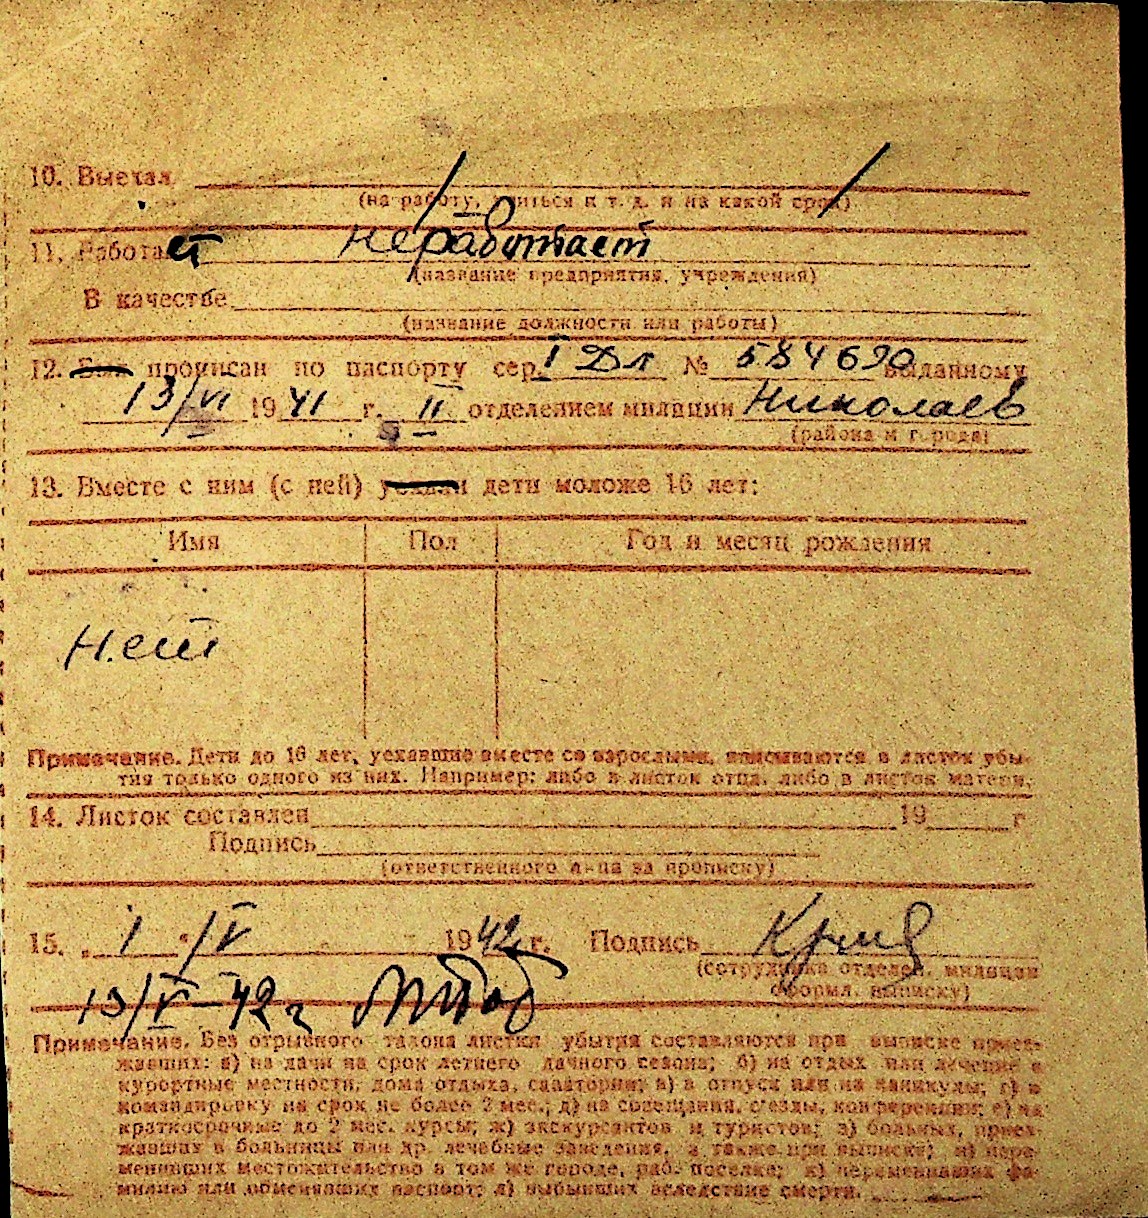 10. Выехал
(на работу, учиться и т. д. и на какой срок)
11. Работает неработает
(название предприятия, учреждения)
В качестве
(название должности или работы)
12. Был прописан по паспорту сер. I Дл № 584690 выданному
13/VI 1941 г. II отделением милиции Николаев
(района и города)
13. Вместе с ним (с ней) уехали дети моложе 16 лет:
Имя Пол Год и месяц рождения
Нет
Примечание. Дети до 16 лет, уехавшие вместе со взрослыми, вписываются в листок убы-
тия только одного из них. Например: либо в листок отца, либо в листок матери.
14. Листок составлен 19 г
Подпись
(ответственного лица за прописку)
15. „1“/V 1942 г. Подпись
(сотрудника отделен. милиции
оформл. выписку)
13/V-42 г
Примечание. Без отрывного талона листки убытия составляются при выписке приез-
жавших: а) на дачи на срок летнего дачного сезона; б) на отдых или лечение в
курортные местности, дома отдыха, санатории; в) в отпуск или на каникулы; г) в
командировку на срок не более 2 мес.; д) на совещания, с'езды, конференции; е) на
краткосрочные до 2 мес. курсы; ж) экскурсантов и туристов; з) больных, приез-
жавших в больницы или др. лечебные заведения, а также при выписке; и) пере-
менивших местожительство в том же городе, раб. поселке; к) переменивших фа-
милию или обменявших паспорт; л) выбывших вследствие смерти.